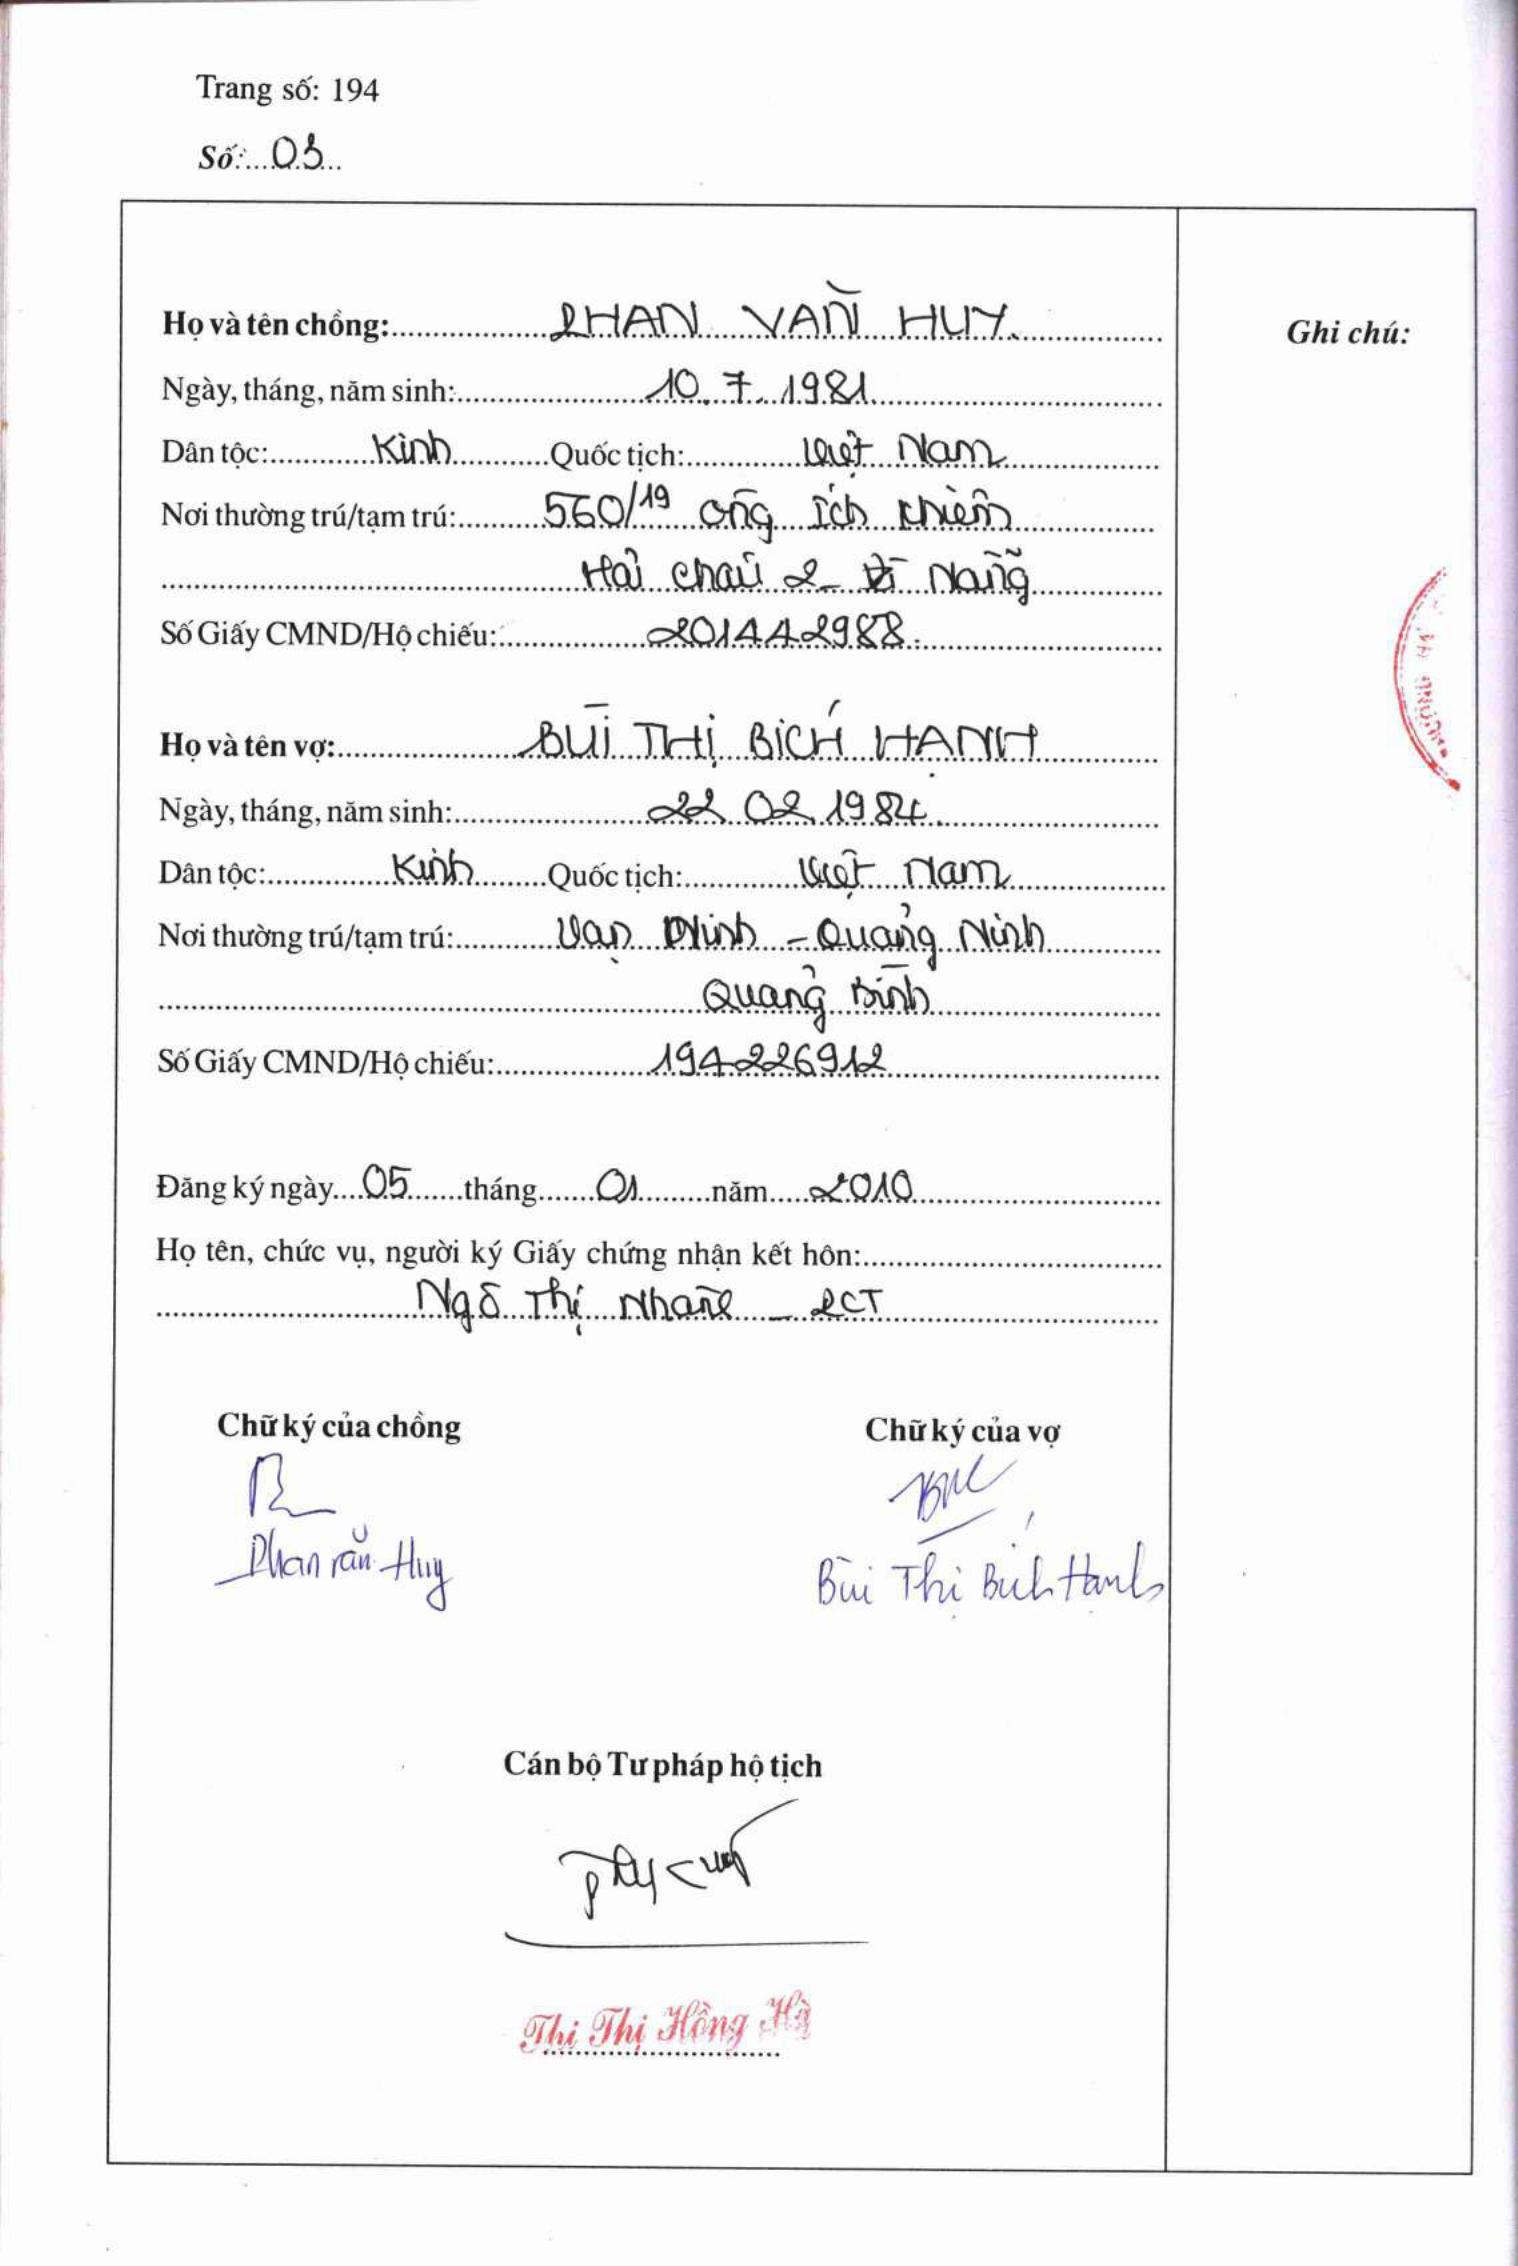 Trang số: 194
Số: 03
Họ và tên chồng: PHAN VĂN HUY
Ghi chú:
Ngày, tháng, năm sinh: 10.7.1981
Dân tộc: Kinh Quốc tịch: Việt Nam
Nơi thường trú/tạm trú: 560/19 Ông Ích Khiêm
Hải Châu 2 - Nẵng
Số Giấy CMND/Hộ chiếu: 201442988
Họ và tên vợ: BÙI THỊ BÍCH HẠNH
Ngày, tháng, năm sinh: 22.02.1984
Dân tộc: Kinh Quốc tịch: Việt Nam
Nơi thường trú/tạm trú: Vạn Ninh - Quảng Ninh
Quảng Bình
Số Giấy CMND/Hộ chiếu: 194226912
Đăng ký ngày 05 tháng 01 năm 2010
Họ tên, chức vụ, người ký Giấy chứng nhận kết hôn:
Ngô Thị - PCT
Chữ ký của chồng
Chữ ký của vợ
Phan Văn Huy
Bùi Thị Bích Hạnh
Cán bộ Tư pháp hộ tịch
Thi Thị Hồng Hà